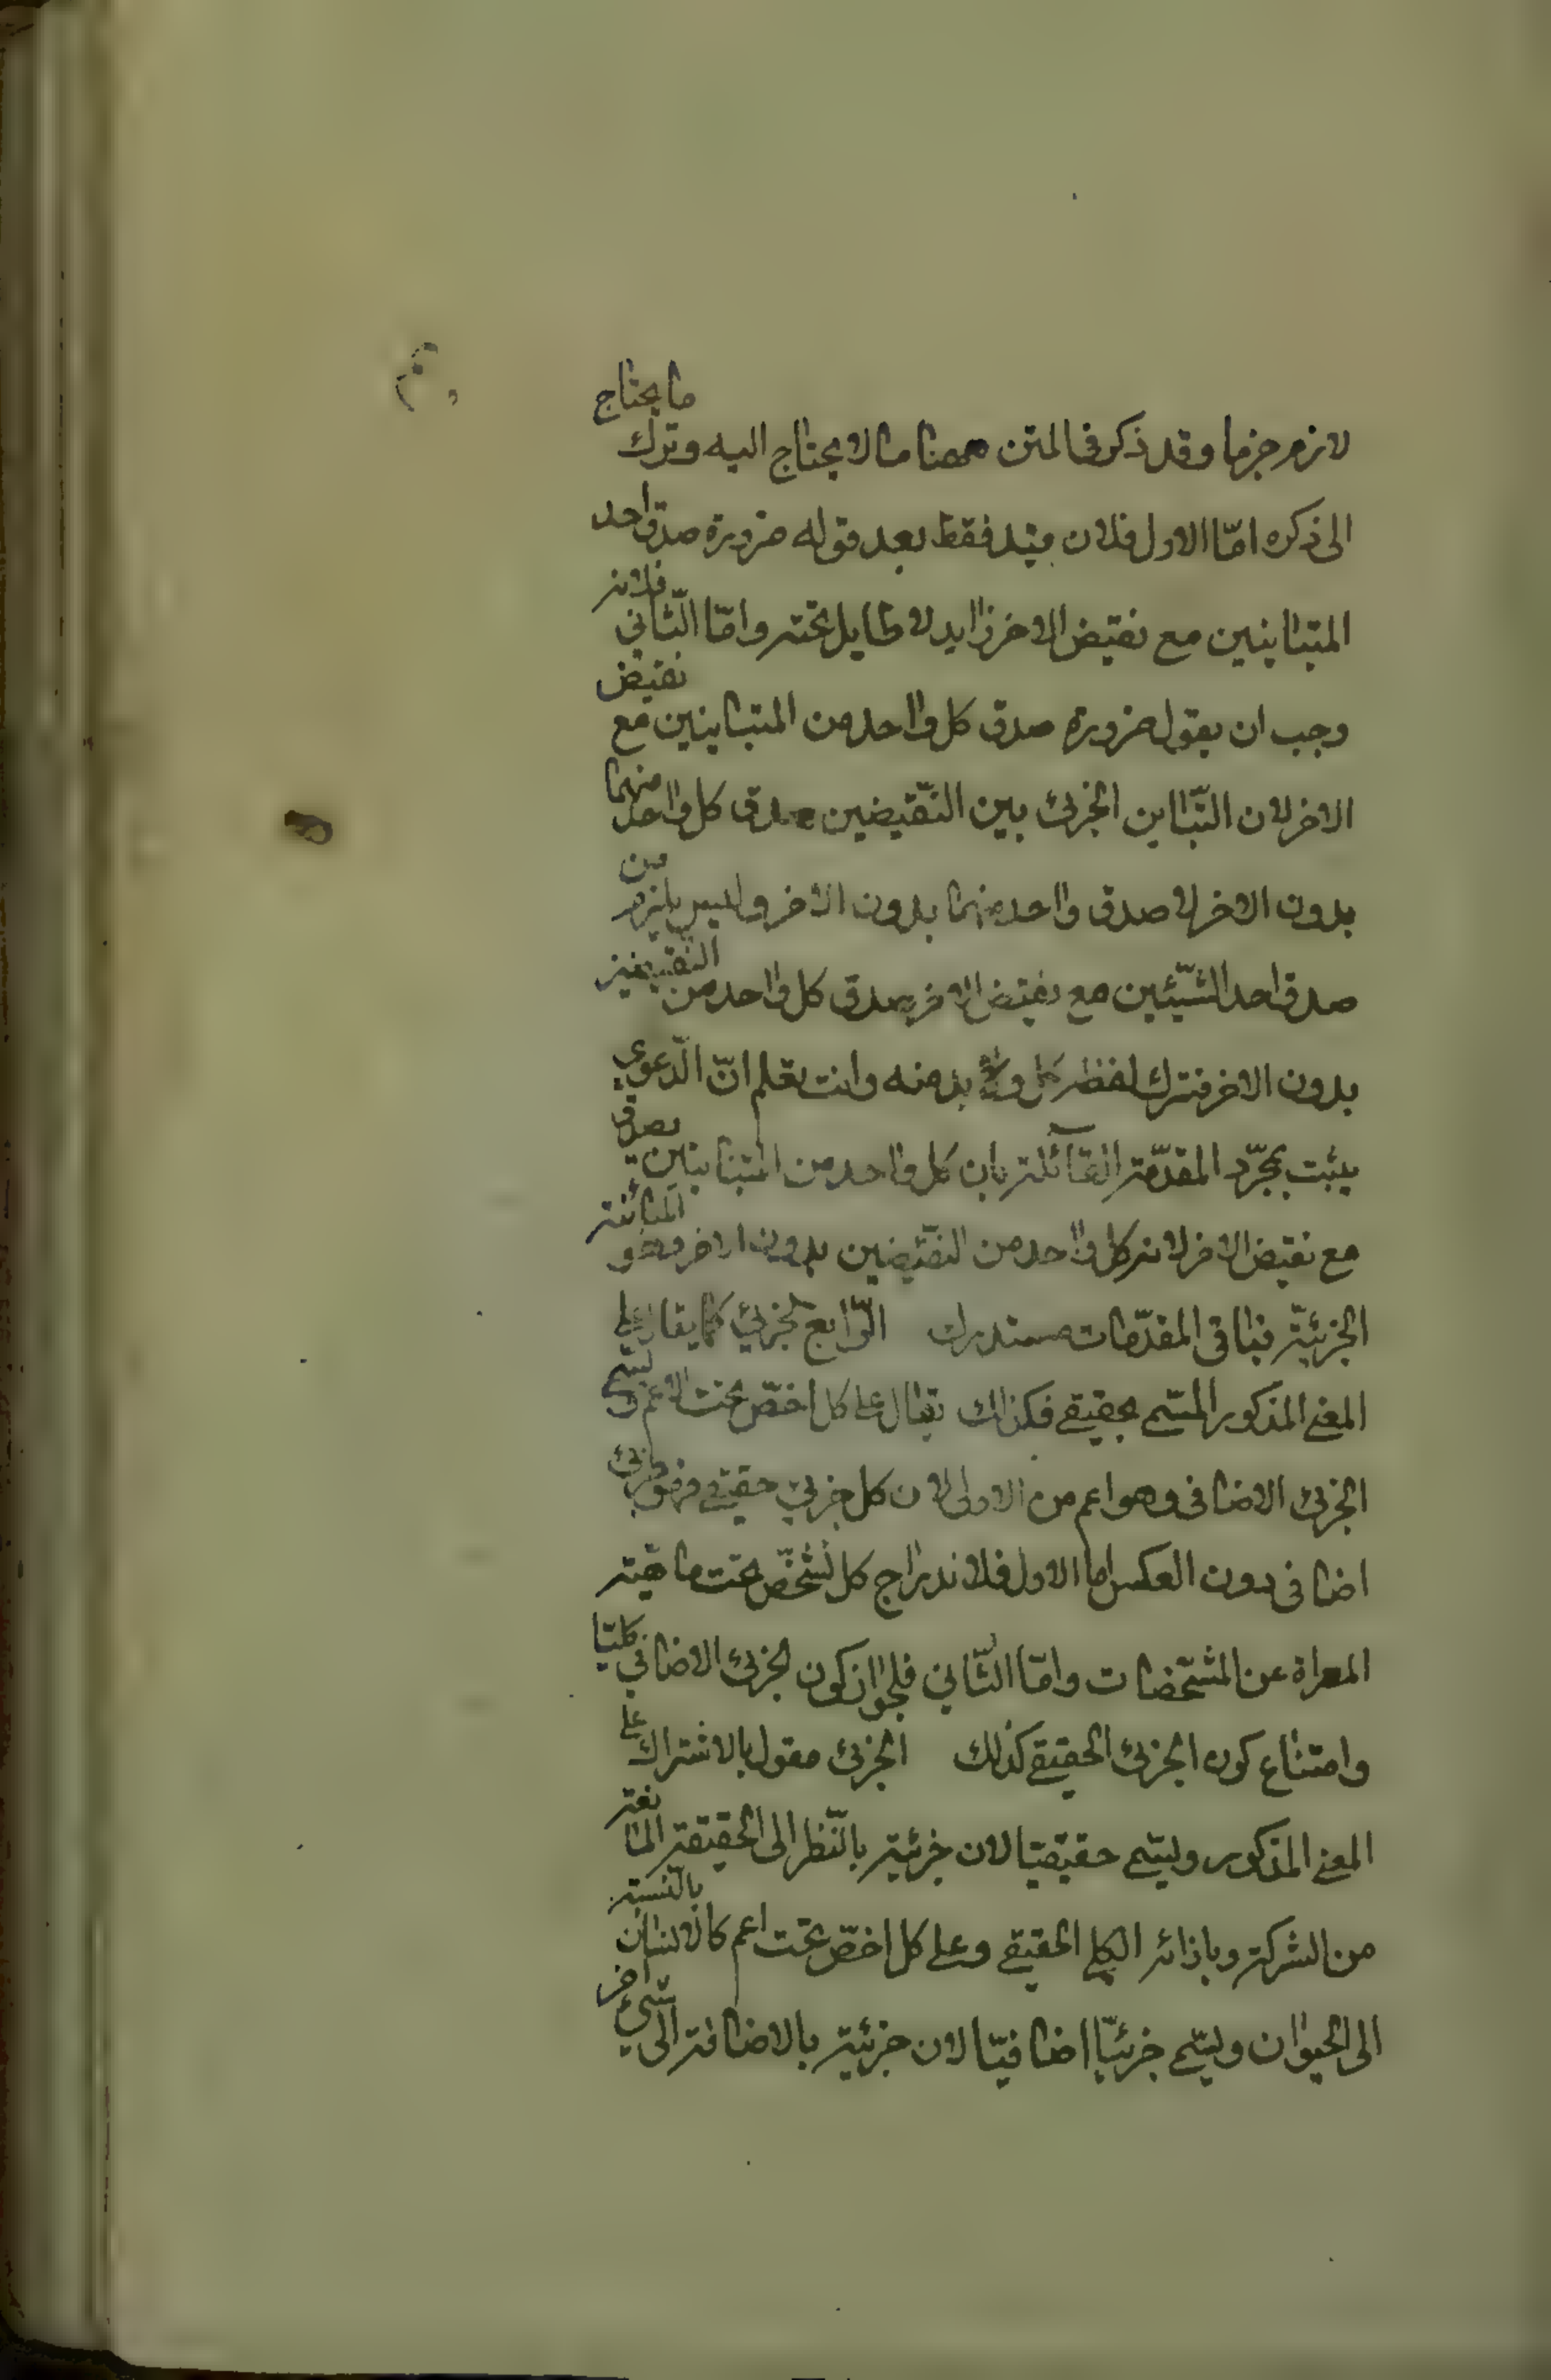 لازم جزما وقد ذكر في المتن ههنا ما لا يحتاج اليه وترك ما يحتاج
الى ذكره امّا الاول فلان قيد فقط بعد قوله ضرورة صدق احد
المتباينين مع نقيض الاخر زايد لا طايل تحته وامّا الثّاني فلانه
وجب ان يقول ضرورة صدق كل واحد من المتباينين مع نقيض
الاخر لان التّباين الجزئ بين النّقيضين صدق كل واحد منهما
بدون الاخر لا صدق واحد منهما بدون الاخر وليس يلزم من
صدق احد الشّيئين مع نقيض الاخر صدق كل واحد من النّقيضين
بدون الاخر فترك لفظ كل ولا بد منه وانت تعلم انّ الدّعوى
يثبت بمجرّد المقدّمة القائلة بان كل واحد من المتباينين يصدق
مع نقيض الاخر لانه كل واحد من النّقيضين بدون الاخر وهو المباينة
الجزئيّة فباقي المقدّمات مستدرك الرّابع الجزئي كما يقال على
المعنى المذكور المسّمى بحقيقي فكذلك يقال على كل اخصّ تحت الاعم ويسمى
الجزئ الاضافي وهو اعم من الاول لان كل جزئي حقيقي فهو جزئ
اضافي بدون العكس اما الاول فلاندراج كل شخصّ تحت ماهيّته
المعراة عن المشخّصات وامّا الثّاني فلجواز كون الجزئ الاضافي كليّا
وامتناع كون الجزئ الحقيقي كذلك الجزئ مقول بالاشتراك على
المعنى المذكور ويسّمى حقيقيّا لان جزئيته بالنّظر الى الحقيقته المانعة
من الشركة وبازائه الكلي الحقيقي وعلى كل اخصّ تحت اعم كالانسان بالنّسبة
الى الحيوان ويسّمى جزئيّا اضافيّا لان جزئيته بالاضافة الى شيء اخر